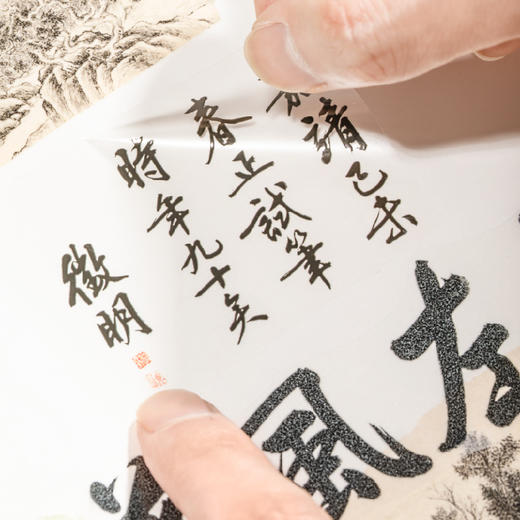 靖己未
春正試筆
時年九十矣
徵明
風